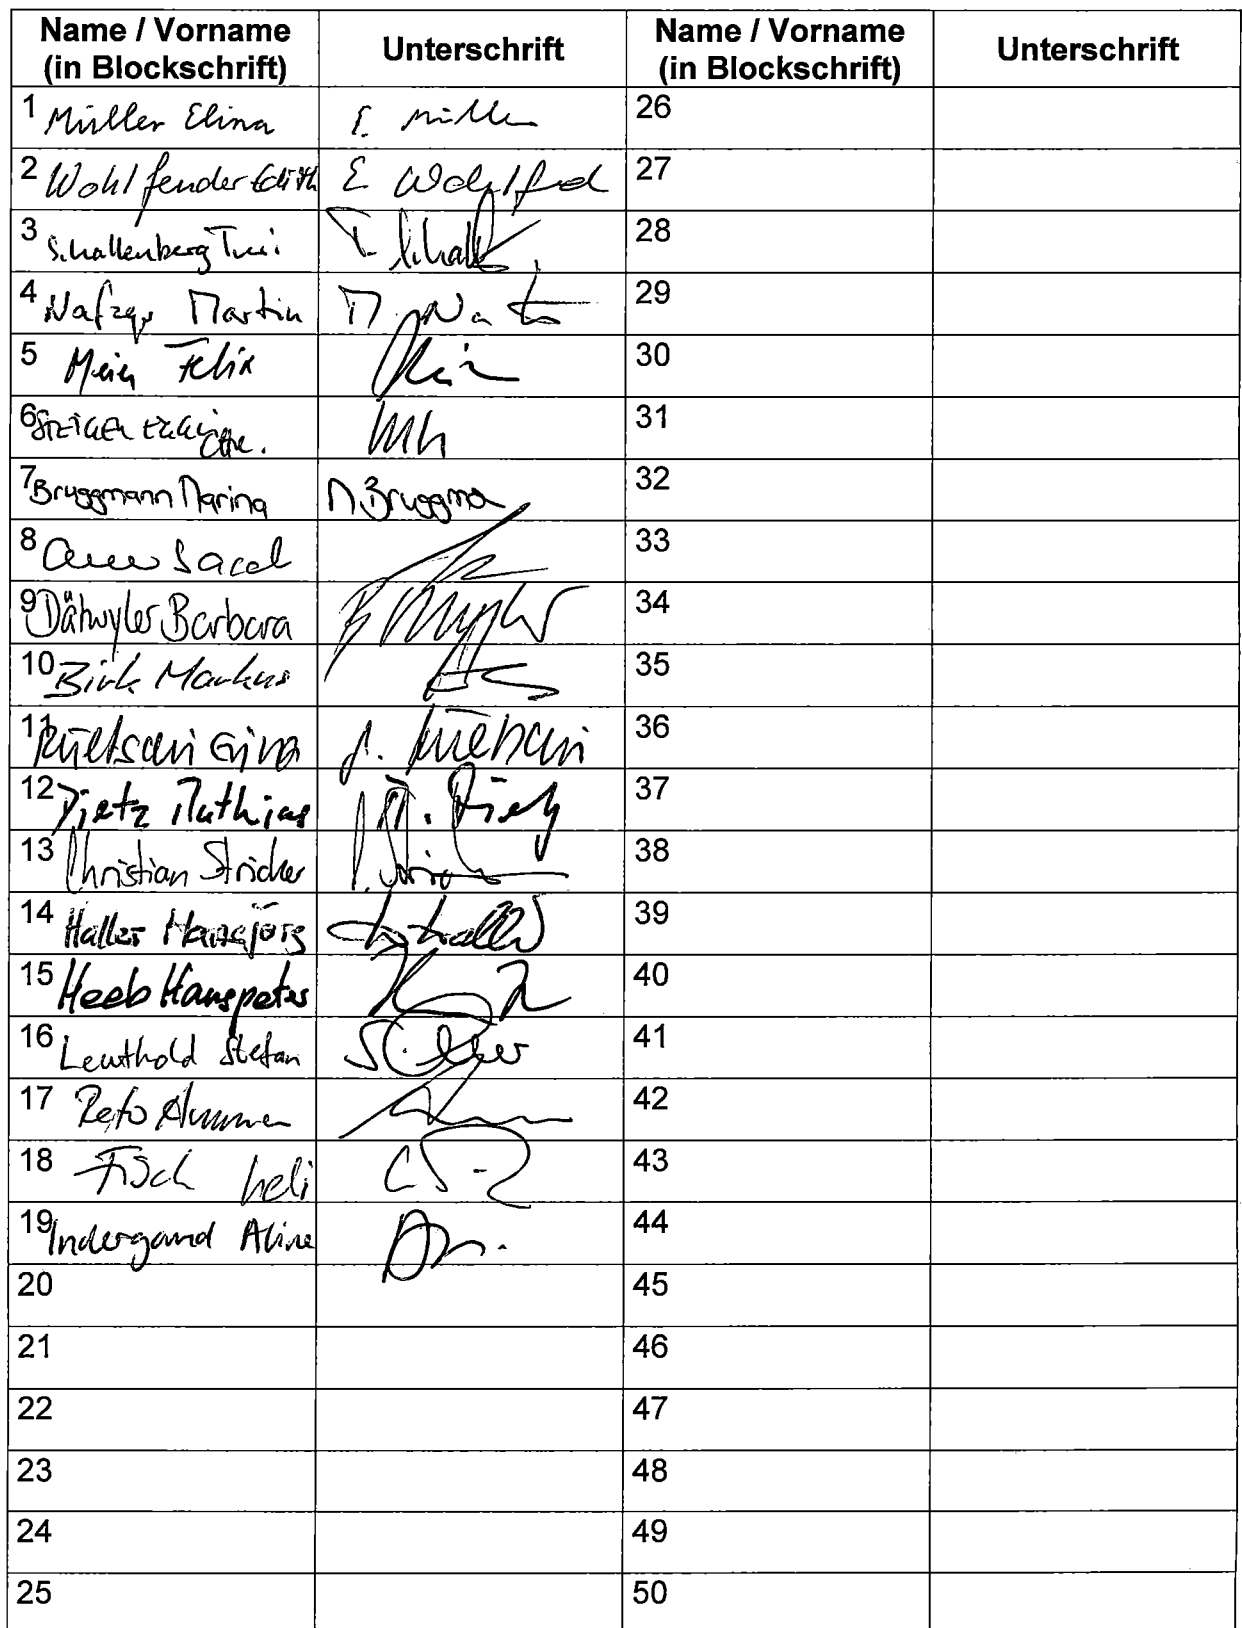 Name / Vorname
(in Blockschrift)
Unterschrift
Name / Vorname
(in Blockschrift)
Unterschrift
1 Müller Elina E. Müller
26
2 Wohlfender Edith E Wohlfed
27
3 Schallenberg Turi T. Schall
28
4 Nafzger Martin M. Na
29
5 Meier Felix
30
6
31
7 Bruggmann Marina M. Bruggma
32
8
33
9 Dätwyler Barbara
34
10 Birk Markus
35
11 Rüetschi Gina
36
12 Dietz Mathias M. Dietz
37
13 Christian Stricker
38
14 Haller Hansjörg Haller
39
15 Heeb Hanspeter
40
16 Leuthold Stefan
41
17 Reto Ammann
42
18 Fisch Ueli
43
19 Indergand Aline
44
20
45
21
46
22
47
23
48
24
49
25
50